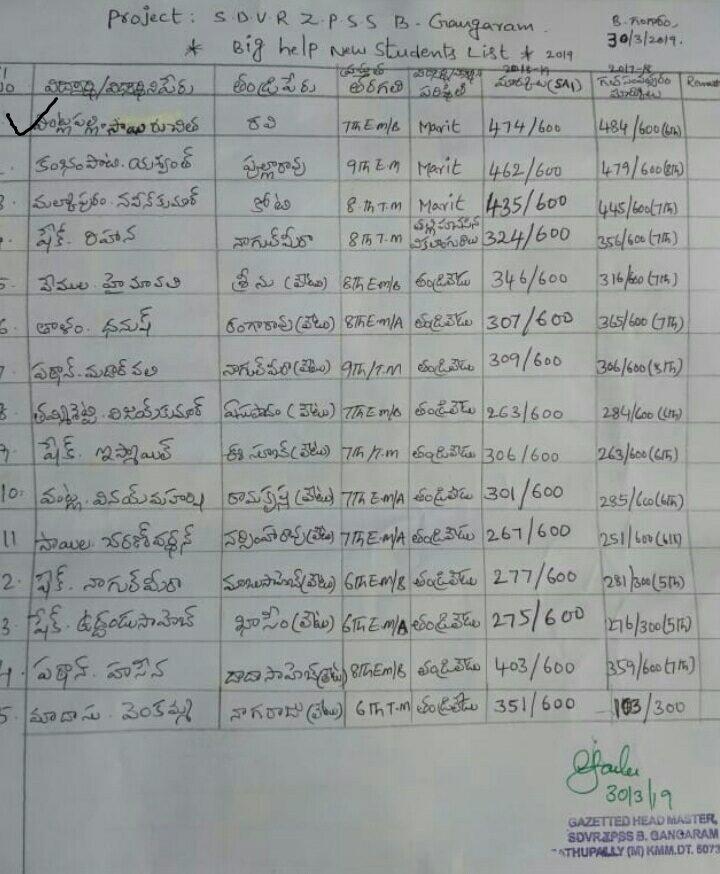 Project: S.D.V.R Z.P.S.S B. Gangaram.
B. గంగారం.
30/3/2019.
* Big help New Students List * 2019
విద్యార్థి/విద్యార్థిని పేరు తండ్రి పేరు తరగతి 2018-19 మార్కులు (SA1) 2017-18 మార్కులు
సాయి రుచిత రవి 7Th E.m/B Marit 474/600 484/600(6th)
కంభంపాటి. యశ్వంత్ పుల్లారావు 9Th E.m Marit 462/600 479/600(8th)
మల్లాపురం. నవీన్ కుమార్ కోటి 8Th T.m Marit 435/600 445/600(7th)
షేక్. రిహాన నాగుల్ మీరా 8Th T.m 324/600 356/600(7th)
5. వేముల. హైమావతి శ్రీను (లేటు) 8Th E.m/B తండ్రి లేడు 346/600 316/600(7th)
6. తాళం. ధనుష్ రంగారావు (లేటు) 8Th E.m/A తండ్రి లేడు 307/600 365/600(7th)
7. పఠాన్. మదార్ వలి నాగుల్ మీరా (లేటు) 9Th/T.m తండ్రి లేడు 309/600 306/600(8th)
8. విజయ్ కుమార్ (లేటు) 7Th E.m/B తండ్రి లేడు 263/600 284/600(6th)
9. షేక్. ఇస్మాయిల్ (లేటు) 7Th/T.m తండ్రి లేడు 306/600 263/600(6th)
10. వంట్ల. వినయ్ మహర్షి రామకృష్ణ (లేటు) 7Th E.m/A తండ్రి లేడు 301/600 285/600(6th)
11 సాయిల. నర్సింహారావు (లేటు) 7Th E.m/A తండ్రి లేడు 267/600 251/600(6th)
2. షేక్. నాగుల్ మీరా మాబుసాహెబ్ (లేటు) 6Th E.m/B తండ్రి లేడు 277/600 281/300(5th)
3. షేక్. ఉద్దండుసాహెబ్ ఖాసీం (లేటు) 6Th E.m/A తండ్రి లేడు 275/600 276/300(5th)
4. పఠాన్. హసీన దాదాసాహెబ్ (లేటు) 8Th E.m/B తండ్రి లేడు 403/600 359/600(7th)
5. మాదాసు. వెంకమ్మ నాగరాజు (లేటు) 6Th T.m తండ్రి లేడు 351/600 103/300
30/3/19
GAZETTED HEAD MASTER,
SDVR ZPSS B. GANGARAM
SATHUPALLY (M) KMM.DT. 5073